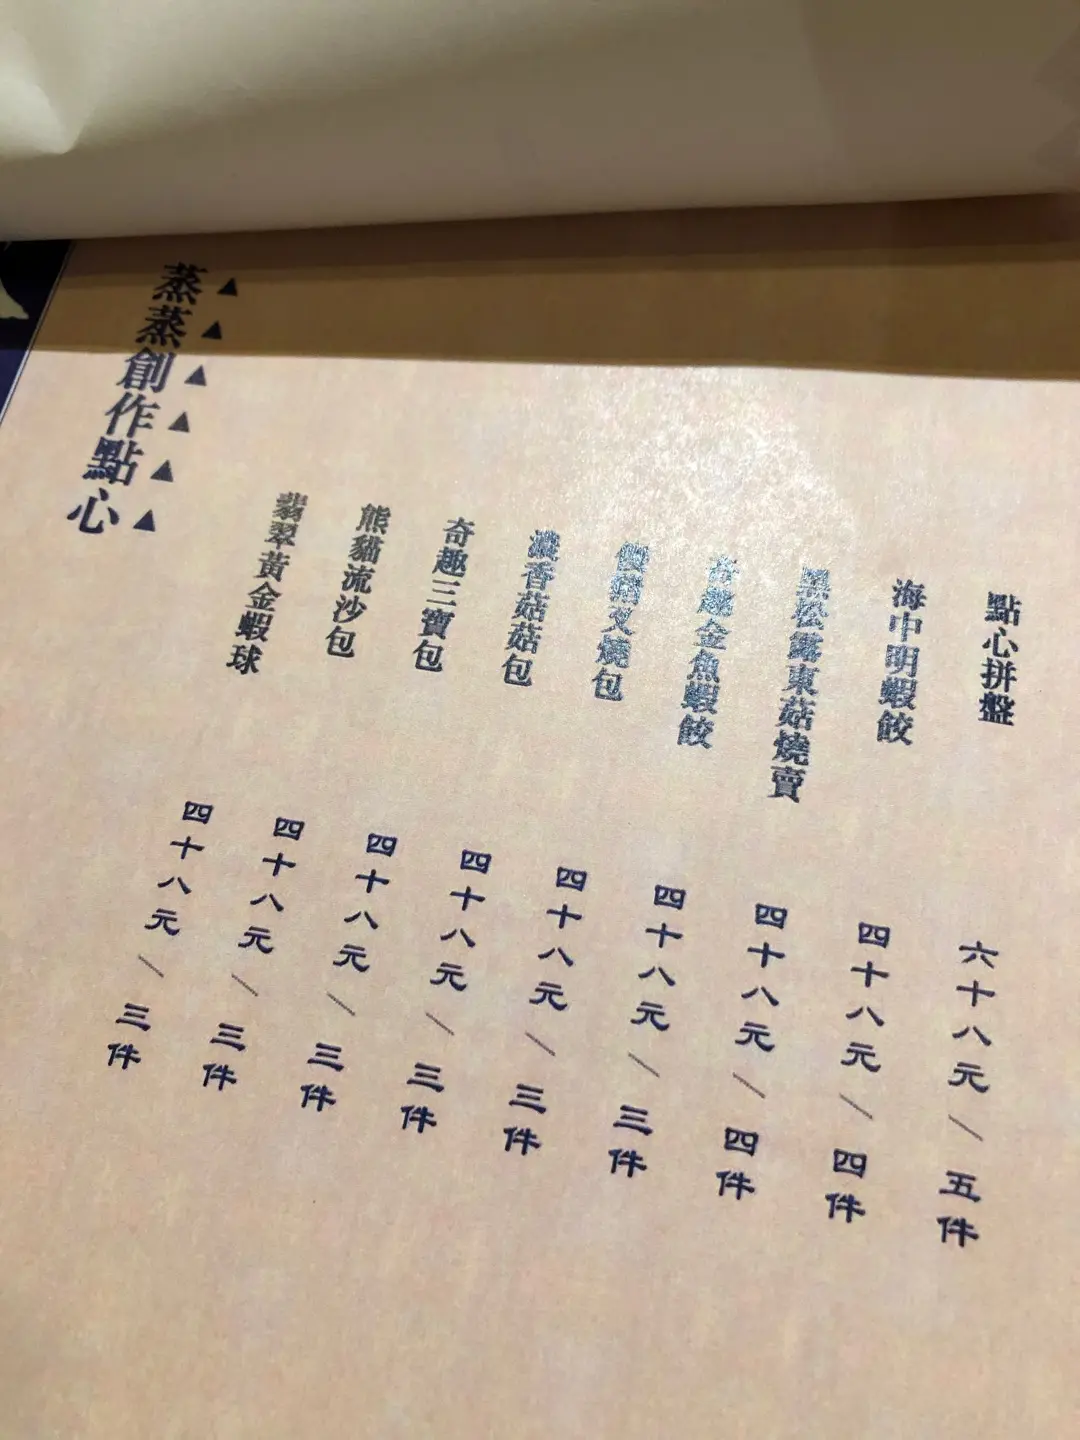 蒸蒸創作點心
翡翠黃金蝦球 四十八元 / 三件
熊貓流沙包 四十八元 / 三件
奇趣三寶包 四十八元 / 三件
濃香菇菇包 四十八元 / 三件
叉燒包 四十八元 / 三件
奇趣金魚蝦餃 四十八元 / 三件
黑松露東菇燒賣 四十八元 / 四件
海中明蝦餃 四十八元 / 四件
點心拼盤 六十八元 / 五件